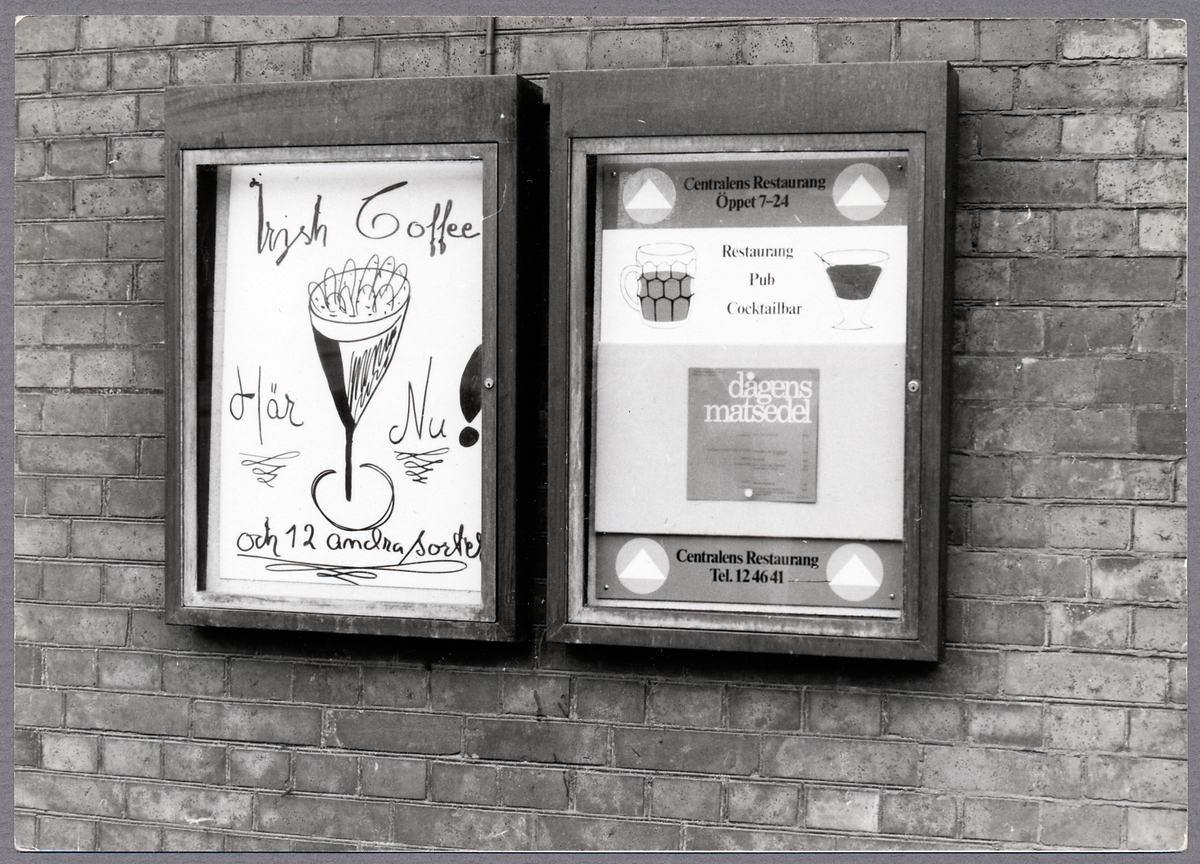 Irish Coffee
Här Nu!
och 12 andra sorter
Centralens Restaurang
Öppet 7–24
Restaurang
Pub
Cocktailbar
dagens
matsedel
Centralens Restaurang
Tel. 12 46 41